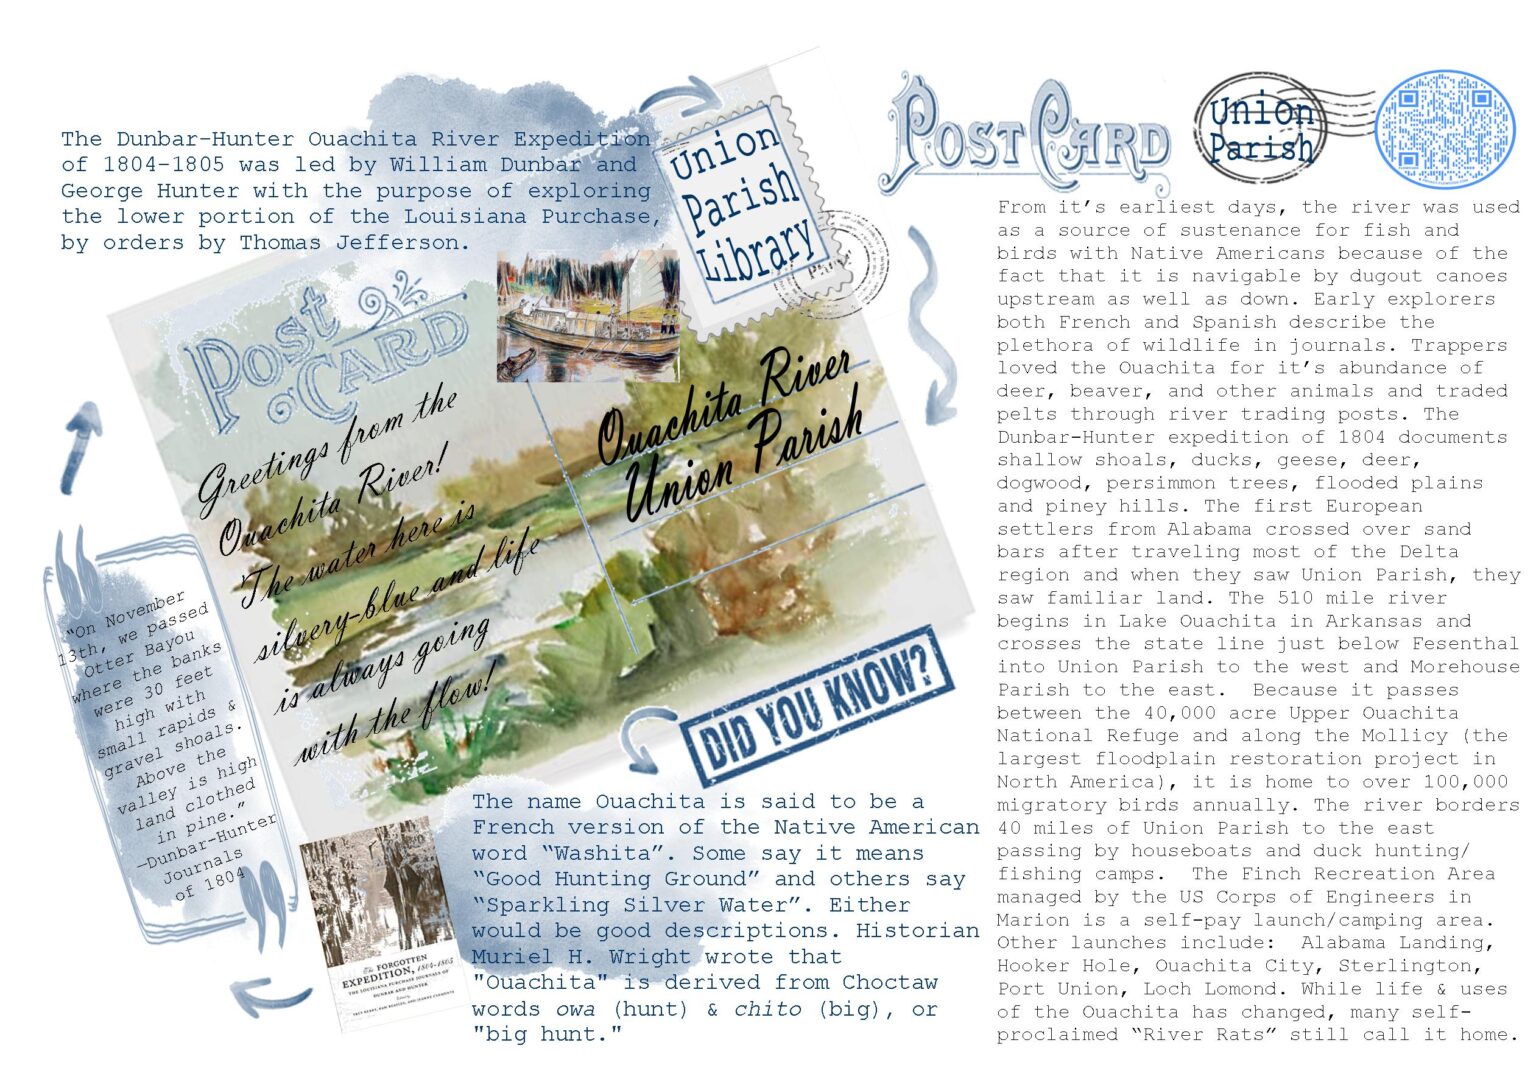 The Dunbar-Hunter Ouachita River Expedition
of 1804-1805 was led by William Dunbar and
George Hunter with the purpose of exploring
the lower portion of the Louisiana Purchase,
by orders by Thomas Jefferson.
Union
Parish
Library
Post
Card
Greetings from the
Ouachita River!
The water here is
silvery-blue and life
is always going
with the flow!
Ouachita River
Union Parish
"On November
13th, we passed
Otter Bayou
where the banks
were 30 feet
high with
small rapids &
gravel shoals.
Above the
valley is high
land clothed
in pine."
—Dunbar-Hunter
Journals
of 1804
DID YOU KNOW?
The FORGOTTEN
EXPEDITION, 1804-1805
THE LOUISIANA PURCHASE JOURNALS OF
DUNBAR AND HUNTER
The name Ouachita is said to be a
French version of the Native American
word “Washita”. Some say it means
“Good Hunting Ground” and others say
“Sparkling Silver Water”. Either
would be good descriptions. Historian
Muriel H. Wright wrote that
"Ouachita" is derived from Choctaw
words owa (hunt) & chito (big), or
"big hunt."
POST CARD
Union
Parish
From it’s earliest days, the river was used
as a source of sustenance for fish and
birds with Native Americans because of the
fact that it is navigable by dugout canoes
upstream as well as down. Early explorers
both French and Spanish describe the
plethora of wildlife in journals. Trappers
loved the Ouachita for it’s abundance of
deer, beaver, and other animals and traded
pelts through river trading posts. The
Dunbar-Hunter expedition of 1804 documents
shallow shoals, ducks, geese, deer,
dogwood, persimmon trees, flooded plains
and piney hills. The first European
settlers from Alabama crossed over sand
bars after traveling most of the Delta
region and when they saw Union Parish, they
saw familiar land. The 510 mile river
begins in Lake Ouachita in Arkansas and
crosses the state line just below Fesenthal
into Union Parish to the west and Morehouse
Parish to the east.  Because it passes
between the 40,000 acre Upper Ouachita
National Refuge and along the Mollicy (the
largest floodplain restoration project in
North America), it is home to over 100,000
migratory birds annually. The river borders
40 miles of Union Parish to the east
passing by houseboats and duck hunting/
fishing camps.  The Finch Recreation Area
managed by the US Corps of Engineers in
Marion is a self-pay launch/camping area.
Other launches include:  Alabama Landing,
Hooker Hole, Ouachita City, Sterlington,
Port Union, Loch Lomond. While life & uses
of the Ouachita has changed, many self-
proclaimed “River Rats” still call it home.